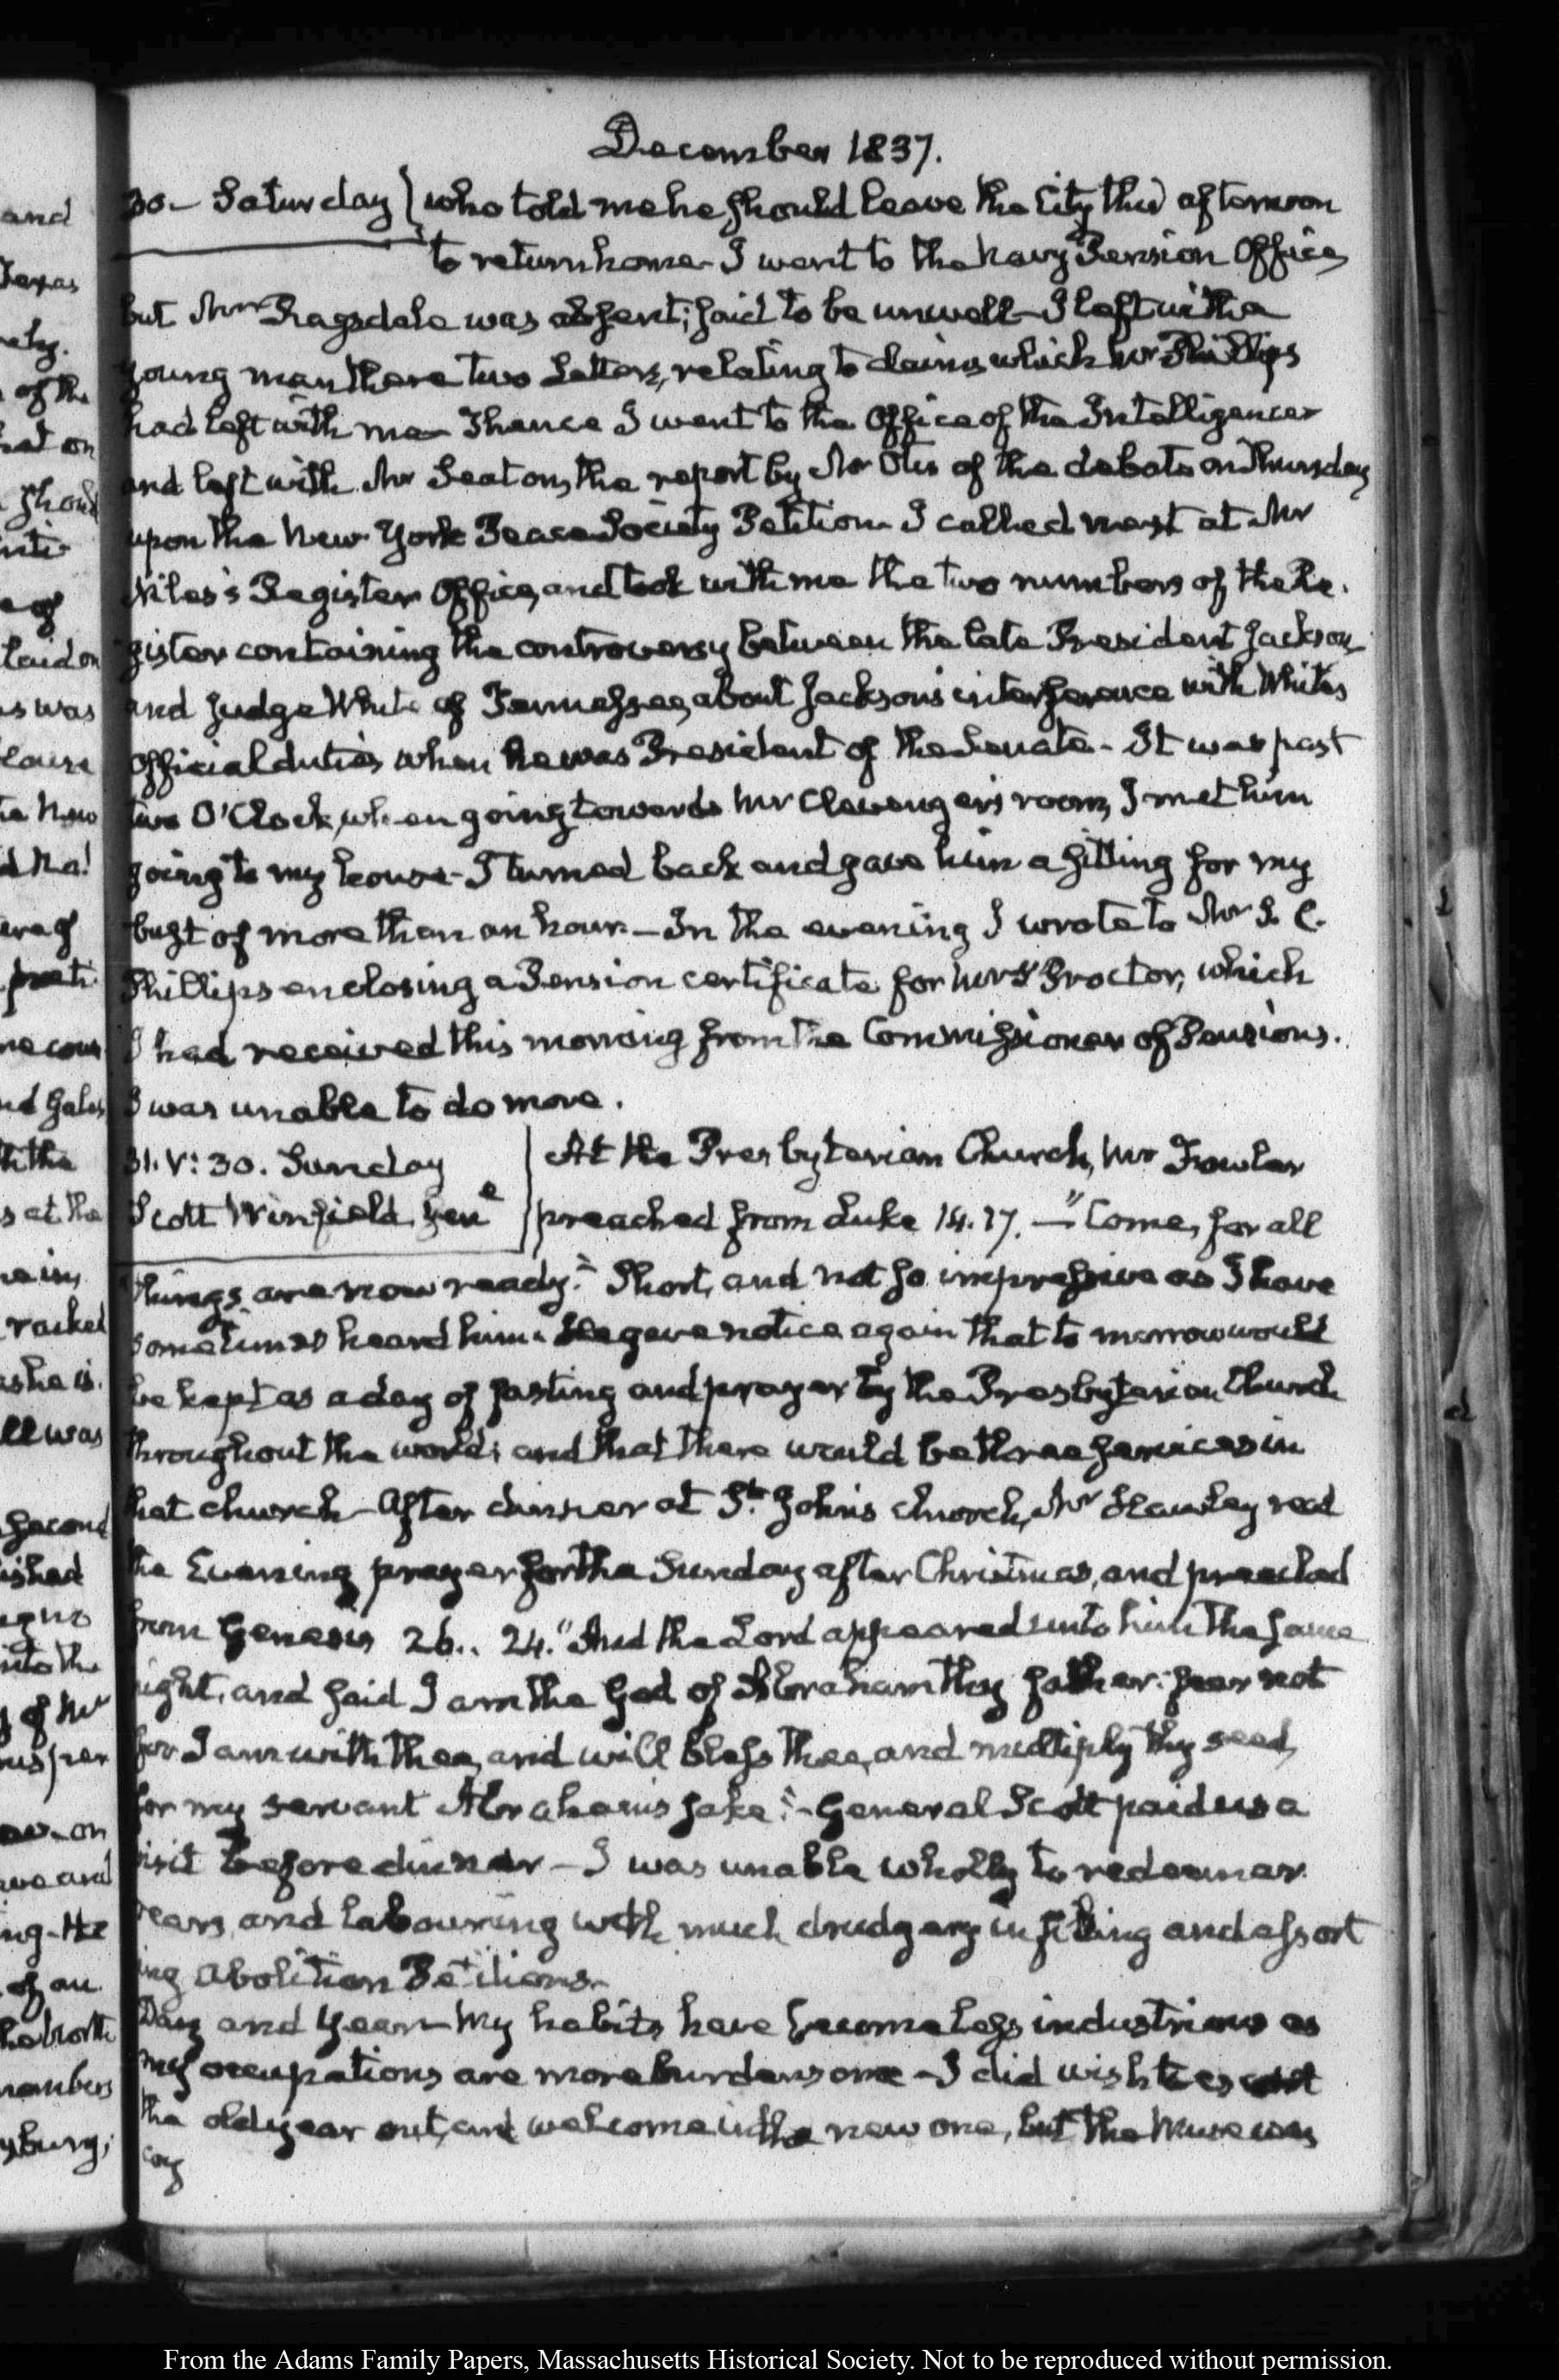 December 1837.
30. Saturday who told me he should leave the City this afternoon
to return home. I went to the Navy Pension Office,
but Mr Ragsdale was absent; said to be unwell. I left with a
young man there two Letters, relating to claims which Mr Phillips
had left with me. Thence I went to the Office of the Intelligencer
and left with Mr Seaton, the report by Mr Otis of the debate on Thursday
upon the New York Peace Society Petition. I called next at Mr
Niles's Register Office, and took with me the two numbers of the Re-
gister containing the controversy between the late President Jackson
and Judge White of Tennessee, about Jackson's interference with White's
Official duties when he was President of the Senate. It was past
two O'Clock, when going towards Mr Clevenger's room, I met him
going to my house. I turned back and gave him a sitting for my
bust of more than an hour. In the evening I wrote to Mr S. C.
Phillips enclosing a Pension certificate for Mrs Proctor, which
I had received this morning from the Commissioner of Pensions.
I was unable to do more.
31. V: 30. Sunday At the Presbyterian Church, Mr Fowler
Scott Winfield Genl preached from Luke 14. 17. "Come, for all
things are now ready." Short, and not so impressive as I have
sometimes heard him. He gave notice again that to morrow would
be kept as a day of fasting and prayer by the Presbyterian Church
throughout the world; and that there would be three services in
that church. After dinner at St. John's church, Mr Hawley read
the Evening prayer for the Sunday after Christmas, and preached
from Genesis 26. 24. "And the Lord appeared unto him the same
night, and said I am the God of Abraham thy father: fear not
for I am with thee, and will bless thee, and multiply thy seed,
for my servant Abraham's sake." General Scott paid us a
visit before dinner. I was unable wholly to redeem ar-
rears, and labouring with much drudgery in filing and assort
ing Abolition Petitions.
Day and Year. My habits have become less industrious as
my occupations are more burdensome. I did wish to escort
the old year out, and welcome in the new one, but the Muse was
coy
From the Adams Family Papers, Massachusetts Historical Society. Not to be reproduced without permission.